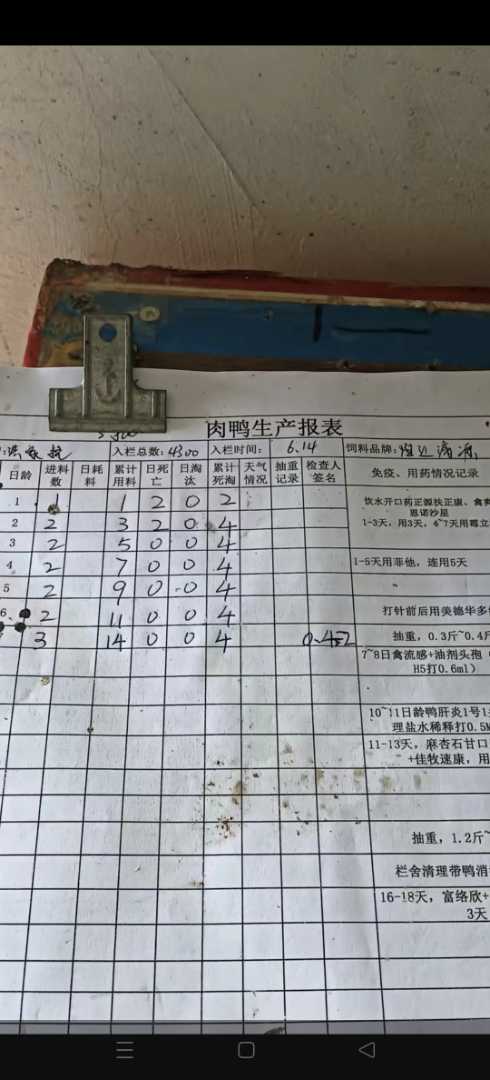 肉鸭生产报表
入栏总数:4300 入栏时间: 6.14 饲料品牌:
日龄 进料数 日耗料 累计用料 日死亡 日淘汰 累计死淘 天气情况 抽重记录 检查人签名 免疫、用药情况记录
1 1 1 2 0 2 饮水开口药正源扶正康、禽
恩诺沙星
2 2 3 2 0 4 1-3天，用3天，4~7天用霉立
3 2 5 0 0 4
4 2 7 0 0 4 1-5天用菲他，连用5天
5 2 9 0 0 4
6 2 11 0 0 4 打针前后用美德华多
3 14 0 0 4 抽重，0.3斤~0.4斤
7~8日禽流感+油剂头孢
H5打0.6ml）
10~11日龄鸭肝炎1号1
理盐水稀释打0.5
11-13天，麻杏石甘口
+佳牧速康，用
抽重，1.2斤~
栏舍清理带鸭消
16-18天，富络欣+
3天